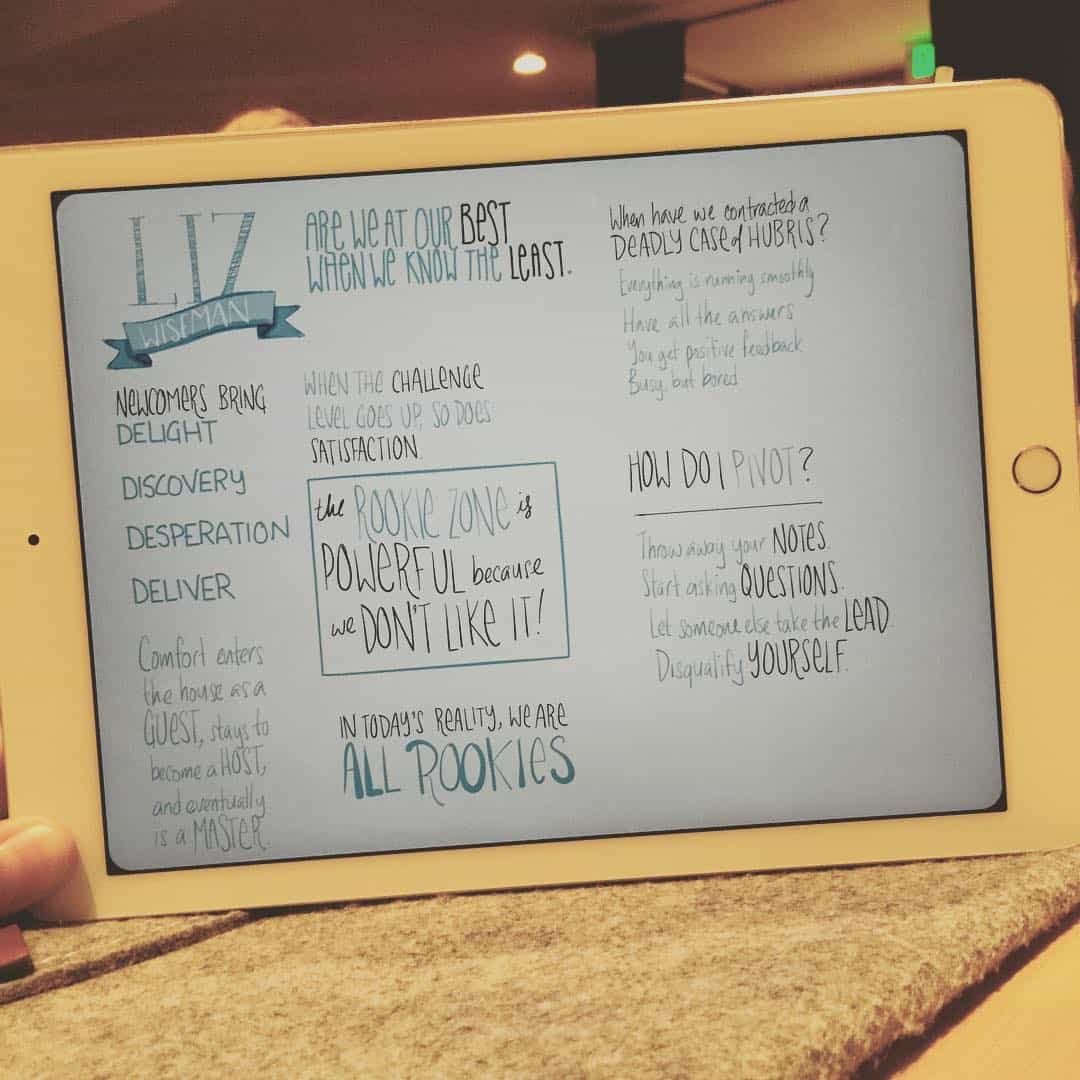 LIZ
WISEMAN
NEWCOMERS BRING
DELIGHT
DISCOVERY
DESPERATION
DELIVER
Comfort enters
the house as a
GUEST, stays to
become a HOST,
and eventually
is a MASTER.
ARE WE AT OUR BEST
WHEN WE KNOW THE LEAST.
WHEN THE CHALLENGE
LEVEL GOES UP, SO DOES
SATISFACTION.
the ROOKIE ZONE is
POWERFUL because
we DON'T LIKE IT!
IN TODAY'S REALITY, WE ARE
ALL ROOKIES
When have we contracted a
DEADLY CASE of HUBRIS?
Everything is running smoothly
Have all the answers
You get positive feedback
Busy, but bored.
HOW DO I PIVOT?
Throw away your NOTES.
Start asking QUESTIONS.
Let someone else take the LEAD.
Disqualify YOURSELF.